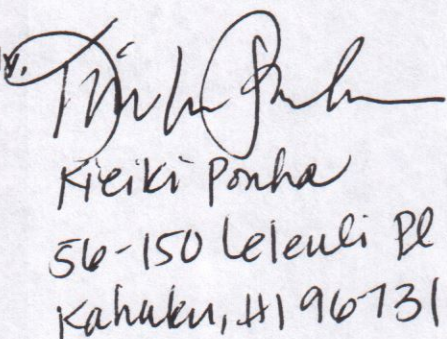 Kieiki Ponha
56-150 Leleuli Pl
Kahuku, HI 96731